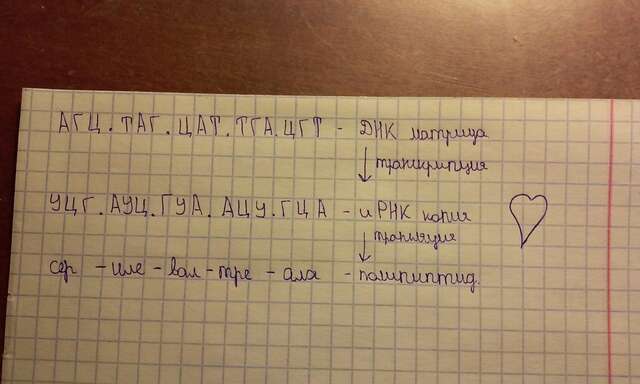 АГЦ. ТАГ. ЦАТ. ТГА. ЦГТ - ДНК матрица
транскрипция
УЦГ. АУЦ. ГУА. АЦУ. ГЦА - и РНК копия
трансляция
сер - иле - вал - тре - ала - полипиптид.